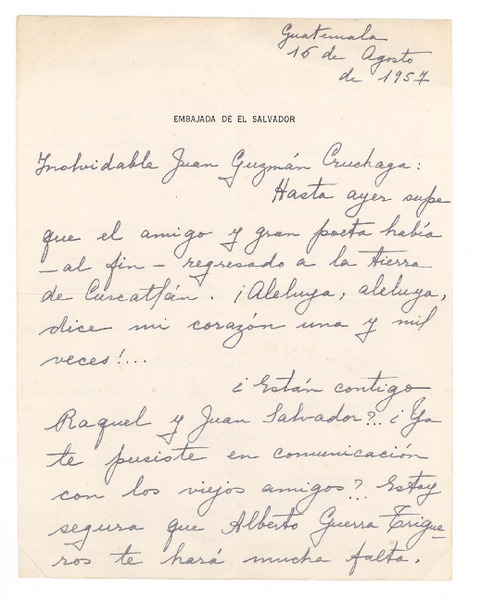 Guatemala
16 de Agosto
de 1957
EMBAJADA DE EL SALVADOR
Inolvidable Juan Guzmán Cruchaga:
Hasta ayer supe
que el amigo y gran poeta había
-al fin- regresado a la tierra
de Cuscatlán. ¡Aleluya, aleluya,
dice mi corazón una y mil
veces!...
¿Están contigo
Raquel y Juan Salvador?... ¿Ya
te pusiste en comunicación
con los viejos amigos?... Estoy
segura que Alberto Guerra Trigue-
ros te hará mucha falta.